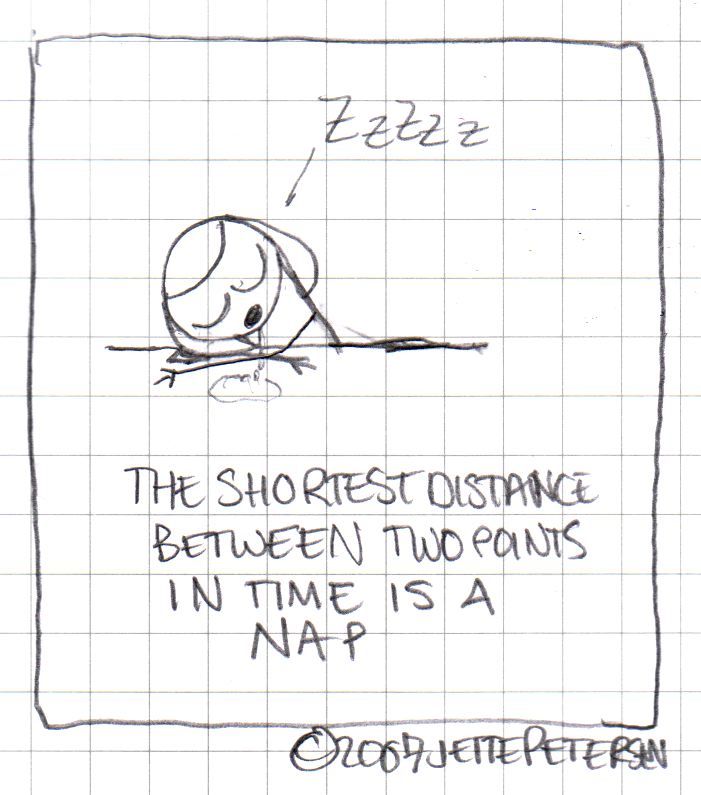 ZzZzz
THE SHORTEST DISTANCE
BETWEEN TWO POINTS
IN TIME IS A
NAP
©2007 JETTE PETERSEN